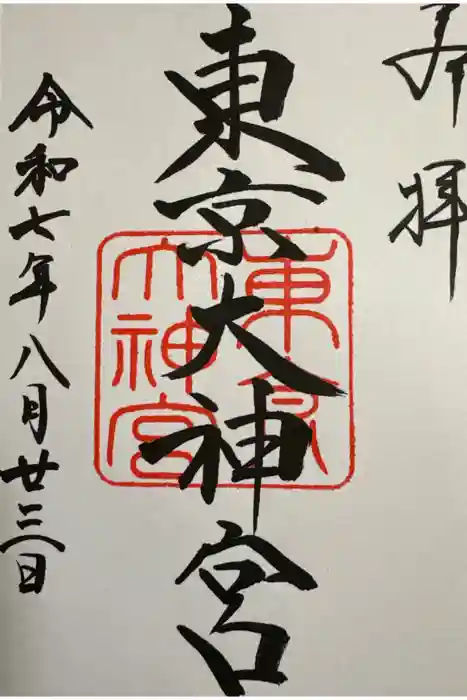 奉拝
東京大神宮
東京
大神宮
令和七年八月廿三日